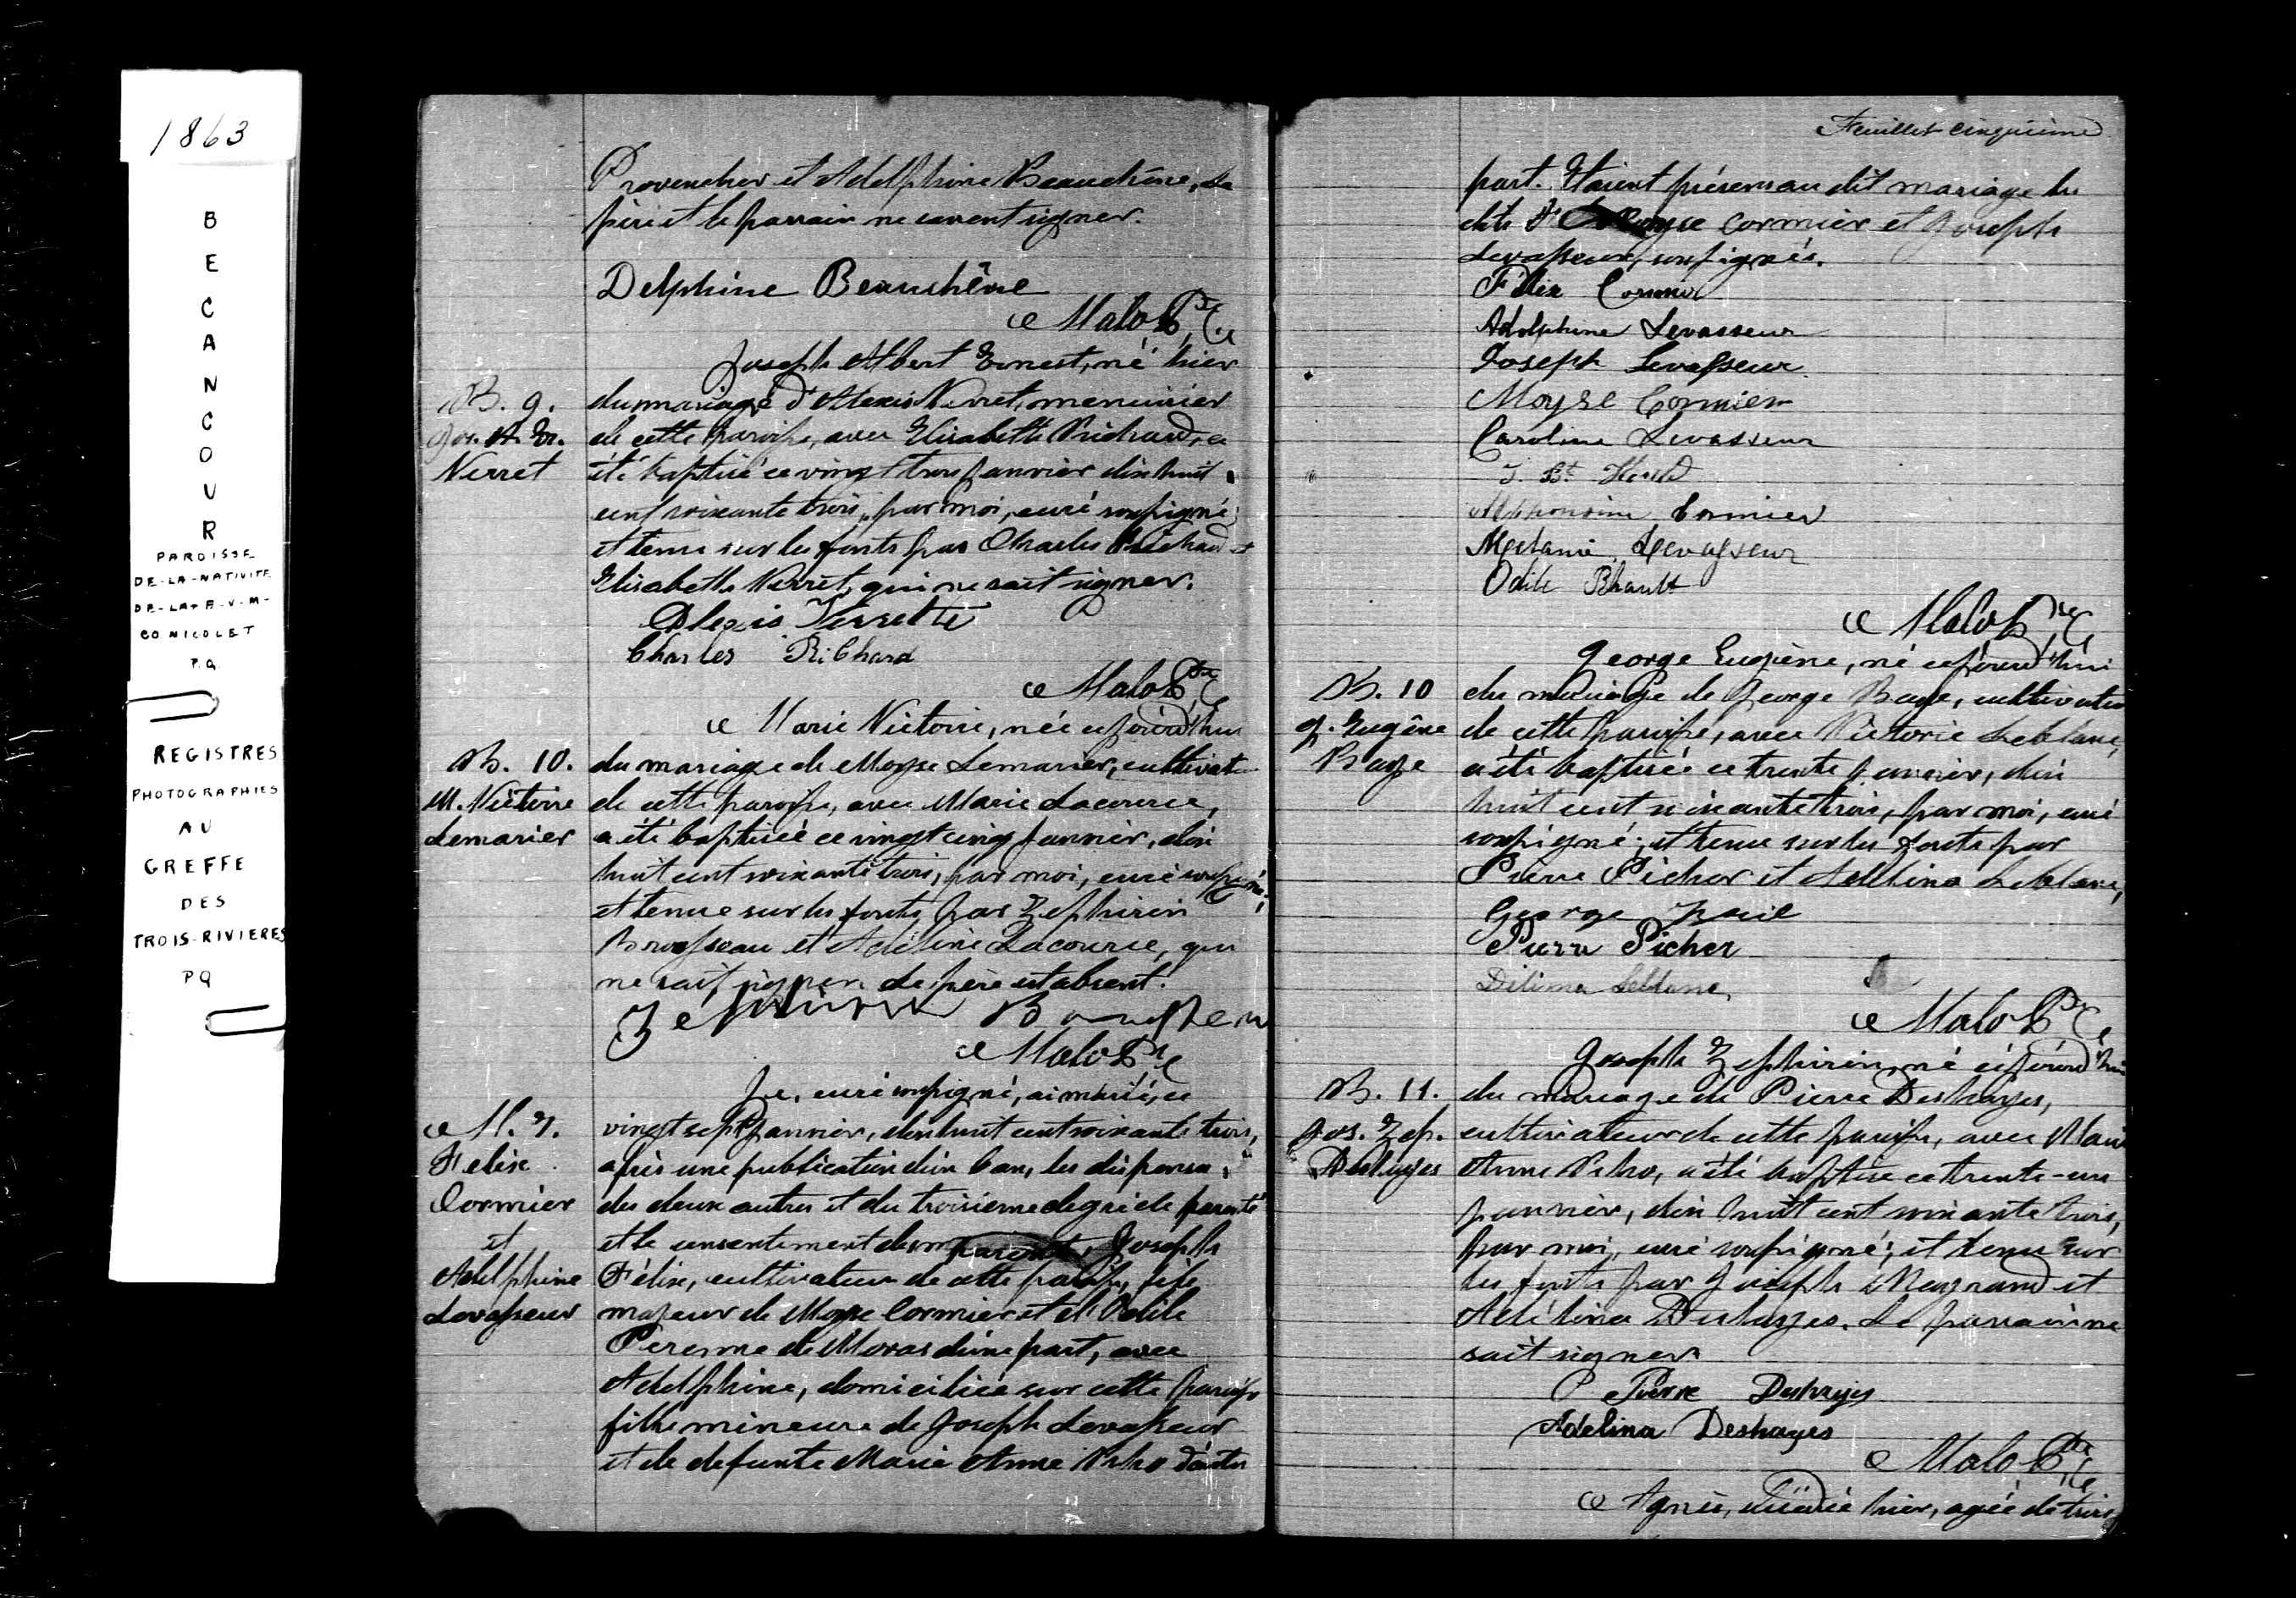 1863
BECANCOUR
PAROISSE
DE-LA-NATIVITE
DE-LA-B-V-M-
CO NICOLET
P.Q.
REGISTRES
PHOTOGRAPHIES
AU
GREFFE
DES
TROIS-RIVIERES
PQ
Provencher et Adelphine Beauchêne, Le
père et le parrain ne savent signer.
Delphine Beauchêne
Malo Ptre
Joseph Albert Ernest, né hier
B. 9.
Jos. A. Er.
Verret
du mariage d'Alexis Verret, menuisier
de cette paroisse, avec Elisabeth Richard, a
été baptisé ce vingt trois janvier dix huit
cent soixante trois, par moi, curé soussigné,
et tenu sur les fonts par Charles Richard et
Elisabeth Verret, qui ne sait signer.
Alexis Verrette
Charles Richard
Malo Ptre
Marie Victoire, née aujourd'hui
B. 10.
M. Victoire
Lemarier
du mariage de Moyse Lemarier, cultivateur
de cette paroisse, avec Marie Lacourse,
a été baptisée ce vingt cinq janvier, dix
huit cent soixante trois, par moi, curé soussigné,
et tenue sur les fonts par Zephirin
Brousseau et Adéline Lacourse, qui
ne sait signer. Le père est absent.
Malo Ptre
Je, curé soussigné, ai marié, ce
M. 7.
Felix
Cormier
et
Adelphine
Levasseur
vingt sept janvier, dix huit cent soixante trois,
après une publication d'un ban, les dispenses
des deux autres et du troisieme degré de parenté
et le consentement des parents, Joseph
Félix, cultivateur de cette paroisse, fils
majeur de Moyse Cormier et d'Odile
Perenne de Moras d'une part, avec
Adelphine, domiciliée sur cette paroisse
fille mineure de Joseph Levasseur
et de defunte Marie Anne d'autre
Feuillet cinquième
part. Etaient présens au dit mariage les
dits Moyse Cormier et Joseph
Levasseur, soussignés.
Félix Cormier
Adolphine Levasseur
Joseph Levasseur
Moyse Cormier
Caroline Levasseur
J. Bt.
Alphonsine Cormier
Melanie Levasseur
Odile
Malo Ptre
George Eugène, né aujourd'hui
B. 10
G. Eugène
Buge
du mariage de George Buge, cultivateur
de cette paroisse, avec Victorie Leblanc,
a été baptisé ce trente janvier, dix
huit cent soixante trois, par moi, curé
soussigné; et tenu sur les fonts par
Pierre Picher et Délima Leblanc,
George
Pierre Picher
Dilima Leblanc
Malo Ptre
Joseph Zephirin, né aujourd'hui
B. 11.
Jos. Zep.
Deshayes
du mariage de Pierre Deshayes,
cultivateur de cette paroisse, avec Marie
Anne, a été baptisé ce trente-un
janvier, dix huit cent soixante trois,
par moi, curé soussigné; et tenu sur
les fonts par Joseph Maynard et
Adélina Deshayes. Le parrain ne
sait signer.
Pierre Deshayes
Adelina Deshayes
Malo Ptre
Agnès, décédée hier, agée de trois